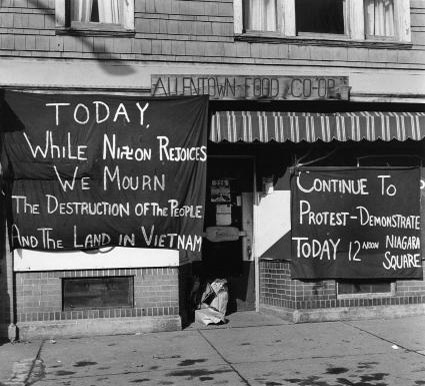 ALLENTOWN FOOD CO-OP
TODAY,
WHILE NIXON REJOICES
WE MOURN
THE DESTRUCTION OF THE PEOPLE
AND THE LAND IN VIETNAM
CONTINUE TO
PROTEST-DEMONSTRATE
TODAY 12 NOON NIAGARA
SQUARE